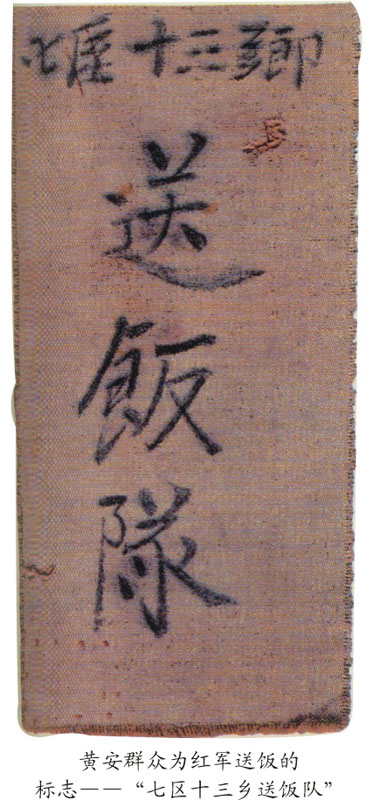 七區十三鄉
送飯隊
黄安群众为红军送饭的
标志——“七区十三乡送饭队”